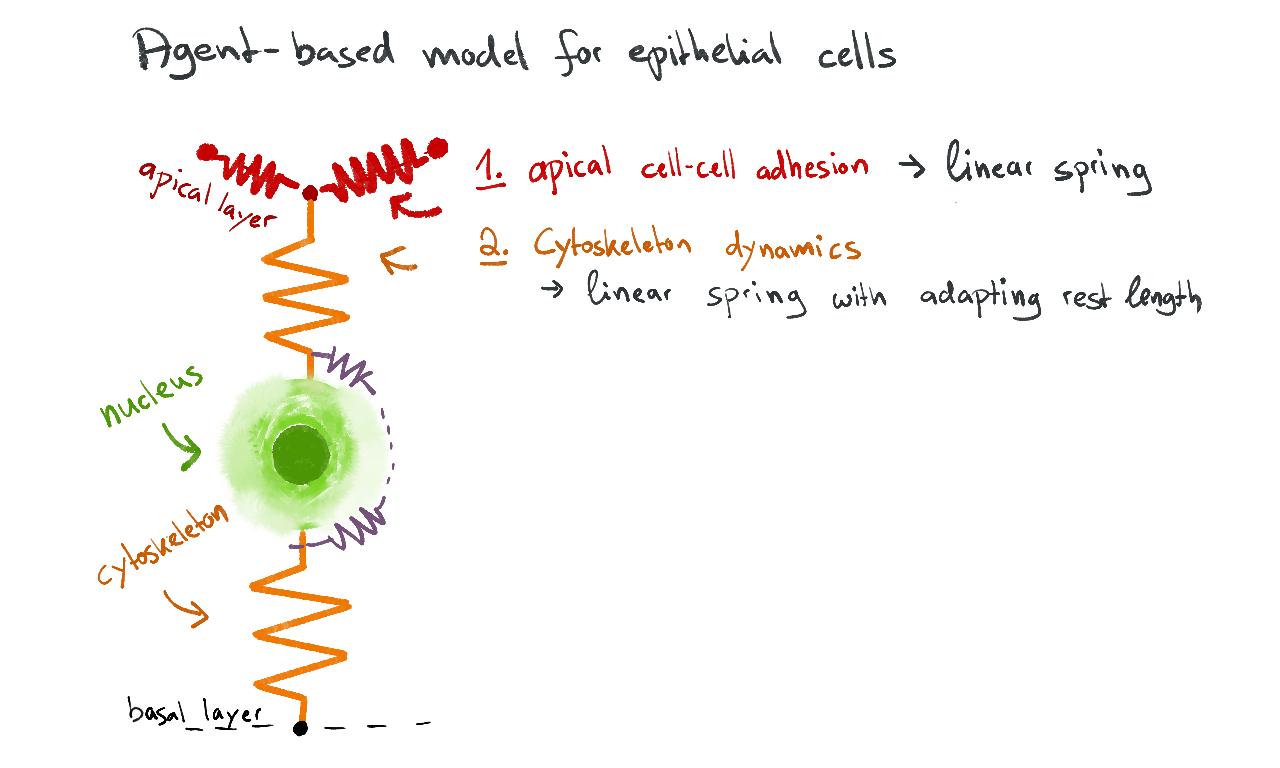 Agent-based model for epithelial cells
apical layer
1. apical cell-cell adhesion → linear spring
2. Cytoskeleton dynamics
→ linear spring with adapting rest length
nucleus
cytoskeleton
basal layer